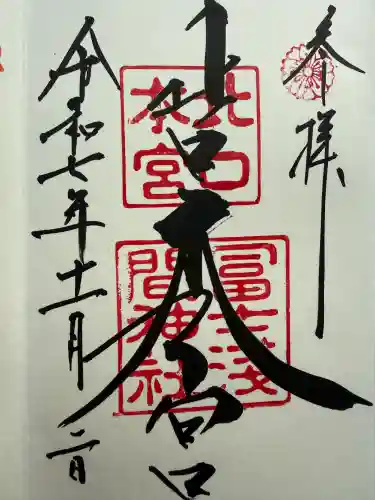 奉拝
北口本宮
北口
本宮
冨士浅
間神社
令和七年十一月二日